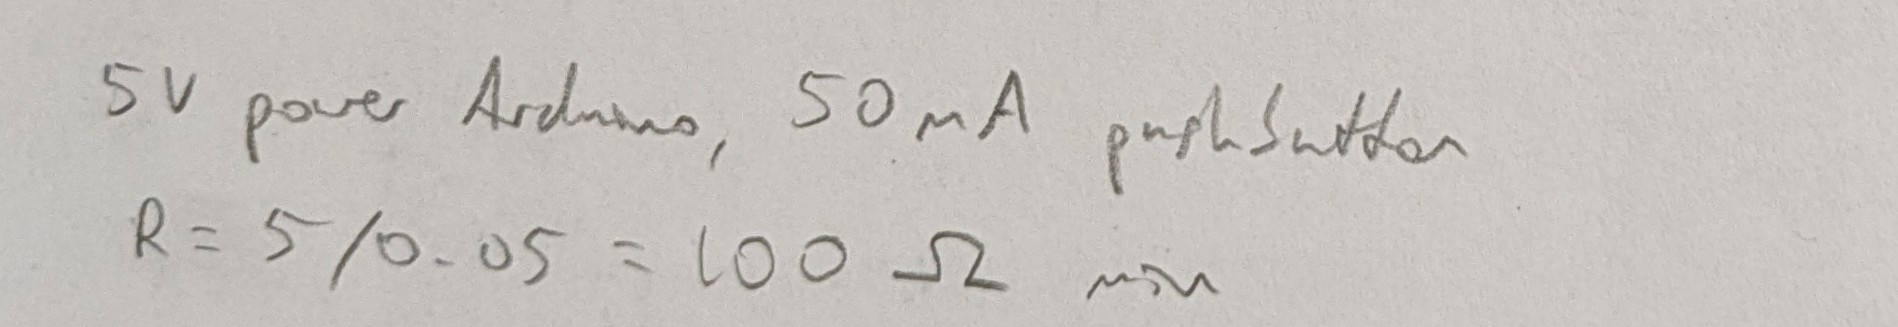 5V power Arduino, 50mA pushbutton
R = 5/0.05 = 100 Ω min